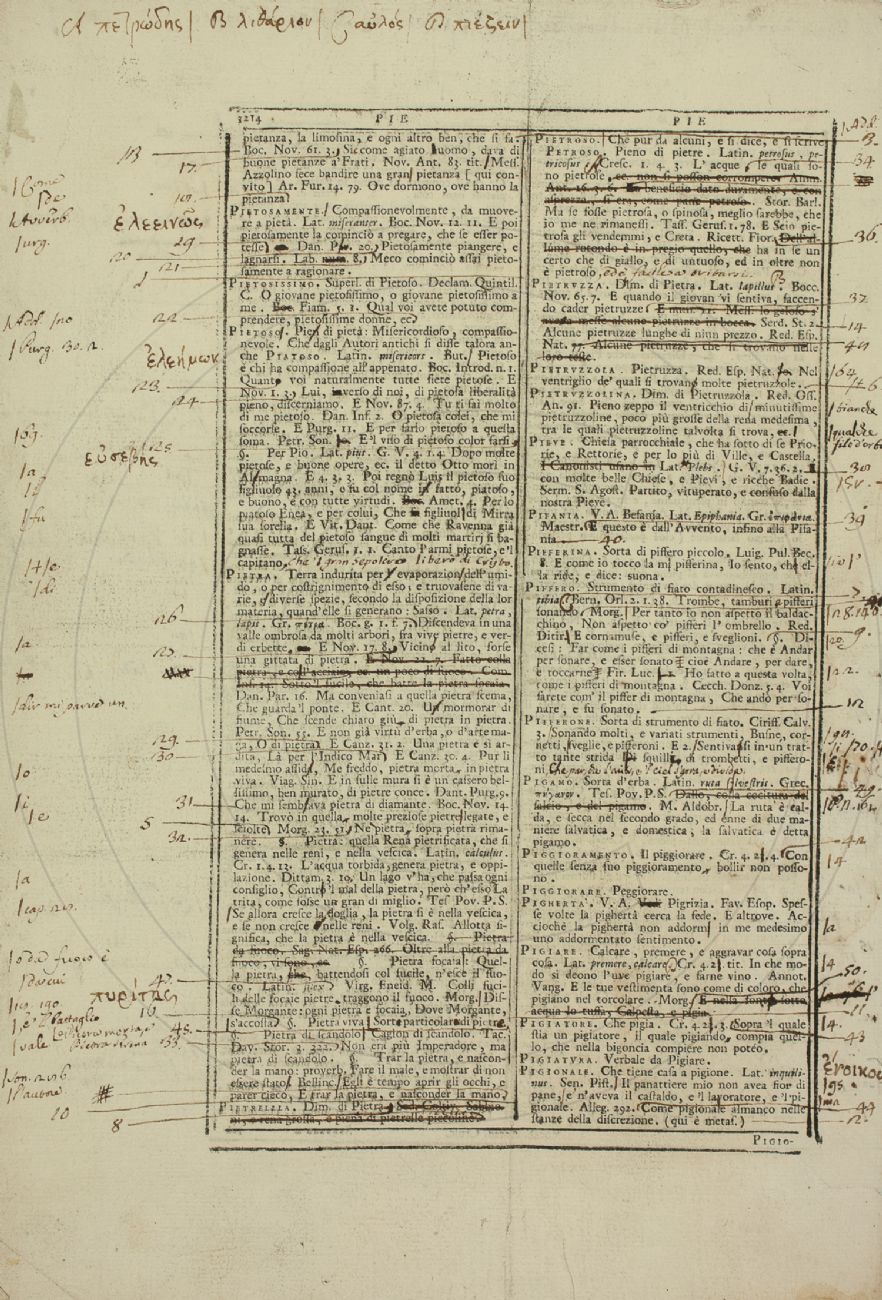 A πετρώδης | B λιθάριον | C αὐλός | D πιέζειν |
1214 PIE
pietanza, la limosina, e ogni altro ben, che si fa.
Boc. Nov. 61. 3. Siccome agiato uomo, dava di
buone pietanze a' Frati. Nov. Ant. 83. tit. Mess.
Azzolino fece bandire una gran pietanza [ qui con-
vito ] Ar. Fur. 14. 79. Ove dormiono, ove hanno la
pietanza
PIETOSAMENTE. Compassionevolmente, da muove-
re a pietà. Lat. miseranter. Boc. Nov. 12. 11. E poi
pietosamente la cominciò a pregare, che se esser po-
tesse Dan. Pur. 20. Pietosamente piangere, e
lagnarsi. Lab. 8. Meco cominciò assai pieto-
samente a ragionare.
PIETOSISSIMO. Superl. di Pietoso. Declam. Quintil.
C. O giovane pietosissimo, o giovane pietosissimo a
me. Fiam. 5. 1. Qual voi avete potuto com-
prendere, pietosissime donne, ec.
PIETOSO. Pien di pietà: Misericordioso, compassio-
nevole. Che dagli Autori antichi si disse talora an-
che PIATOSO. Latin. misericors. But. Pietoso
è chi ha compassione all'appenato. Boc. Introd. n. 1.
Quanto voi naturalmente tutte siete pietose. E
Nov. 1. 3. Lui, inverso di noi, di pietosa liberalità
pieno, discerniamo. E Nov. 87. 4. Tu ti sai molto
di me pietoso. Dan. Inf. 2. O pietosa colei, che mi
soccorse. E Purg. 11. E per farlo pietoso a questa
soma. Petr. Son. E 'l viso di pietoso color farsi
§. Per Pio. Lat. pius. G. V. 4. 1. 4. Dopo molte
pietose, e buone opere, ec. il detto Otto morì in
Alamagna. E 4. 3. 3. Poi regnò Luis il pietoso suo
figliuolo 43. anni, e fu col nome in fatto, piatoso,
e buono, e con tutte virtudi. Amet. 4. Per lo
piatoso Enea, e per colui, Che in figliuol di Mirra
sua sorella. E Vit. Dant. Come che Ravenna già
quasi tutta del pietoso sangue di molti martiri si ba-
gnasse. Tass. Gerus. 1. 1. Canto l'armi pietose, e 'l
capitano, Che 'l gran sepolcro liberò di Cristo.
PIETRA. Terra indurita per evaporazion dell'umi-
do, o per costrignimento di esso; e truovasene di va-
rie, e diverse spezie, secondo la disposizione della lor
materia, quand'elle si generano: Sasso. Lat. petra,
lapis. Gr. πέτρα. Boc. g. 1. f. 7. Discendeva in una
valle ombrosa da molti arbori, fra vive pietre, e ver-
di erbette. E Nov. 17. 8. Vicino al lito, forse
una gittata di pietra. E Nov. 22. 7. Fatto colla
pietra, e coll'acciaio, ec. un poco di fuoco. Com.
Inf. 14. Sotto 'l fucile, che batte la pietra focaia.
Dan. Par. 16. Ma conveniasi a quella pietra scema,
Che guarda 'l ponte. E Cant. 20. Un mormorar di
fiume, Che scende chiaro giù di pietra in pietra.
Petr. Son. 55. E non già virtù d'erba, o d'arte ma-
ga, O di pietra. E Canz. 31. 2. Una pietra è sì ar-
dita, Là per l'Indico Mar. E Canz. 30. 4. Pur lì
medesmo assido, Me freddo, pietra morta in pietra
viva. Viag. Sin. E in sulle mura si è un cassero bel-
lissimo, ben murato, di pietre conce. Dant. Purg. 9.
Che mi sembiava pietra di diamante. Boc. Nov. 14.
14. Trovò in quella molte preziose pietre legate, e
sciolte. Morg. 23. 31. Ne pietra sopra pietra rima-
nere. §. Pietra: quella Rena pietrificata, che si
genera nelle reni, e nella vescica. Latin. calculus.
Cr. 1. 4. 13. L'acqua torbida, genera pietra, e oppi-
lazione. Dittam. 3. 19. Un lago v'ha, che passa ogni
consiglio, Contro 'l mal della pietra, però ch'esso La
trita, come fosse un gran di miglio. Tes. Pov. P. S.
Se allora cresce la doglia, la pietra si è nella vescica,
e se non cresce nelle reni. Volg. Ras. Allotta si-
gnifica, che la pietra è nella vescica. §. Pietra
da fuoco. Sag. Nat. Esp. 266. Oltre alla pietra da
fuoco, vi sono, ec. §. Pietra focaia: Quel-
la pietra, che, battendosi col fucile, n'esce il fuo-
co. Latin. silex. Virg. Eneid. M. Colli fuci-
li delle focaie pietre, traggono il fuoco. Morg. Dis-
se Morgante: ogni pietra è focaia, Dove Morgante,
s'accosta. §. Pietra viva: Sorte particolare di pietra
§. Pietra di scandolo: Cagion di scandolo. Tac.
Dav. Stor. 3. 322. Non era più Imperadore, ma
pietra di scandolo. §. Trar la pietra, e nascon-
der la mano: proverb. Fare il male, e mostrar di non
essere stato. Bellinc. Egli è tempo aprir gli occhi, e
parer cieco, E trar la pietra, e nasconder la mano.
PIETRELLA. Dim. di Pietra. Sod. Coltiv. Sabbio-
ni, o rena grossa, e piena di pietrelle piccoline.
PIE
PIETROSO. Che pur da alcuni, e si dice, e si scrive
PETROSO. Pieno di pietre. Latin. petrosus, pe-
tricosus. Cresc. 1. 4. 3. L'acque, le quali so-
no pietrose, ec. non si posson corrompere. Amm.
Ant. 16. 3. 6. Un beneficio dato duramente, e con
asprezza, si era, come pane petroso. Stor. Barl.
Ma se fosse pietrosa, o spinosa, meglio sarebbe, che
io me ne rimanessi. Tass. Gerus. 1. 78. E Scio pie-
trosa gli vendemmi, e Creta. Ricett. Fior. Dell'al-
lume rotondo è in pregio quello, che ha in se un
certo che di giallo, e di untuoso, ed in oltre non
è pietroso, ed è facile a tritarsi.
PIETRUZZA. Dim. di Pietra. Lat. lapillus. Bocc.
Nov. 65. 7. E quando il giovan vi sentiva, faccen-
do cader pietruzze. E num. 21. Messe lo geloso s'
avesse messe alcune pietruzze in bocca. Serd. St. 2.
Alcune pietruzze lunghe di niun prezzo. Red. Esp.
Nat. 77. Alcune pietruzze, che si trovano nelle
loro teste.
PIETRUZZOLA. Pietruzza. Red. Esp. Nat. Nel
ventriglio de' quali si trovano molte pietruzzole.
PIETRUZZOLINA. Dim. di Pietruzzola. Red. Oss.
An. 91. Pieno zeppo il ventricchio di minutissime
pietruzzoline, poco più grosse della rena medesima,
tra le quali pietruzzoline talvolta si trova, ec.
PIEVE. Chiesa parrocchiale, che ha sotto di se Prio-
rie, e Rettorie, e per lo più di Ville, e Castella.
I Canonisti usano in Lat. Plebs. G. V. 7. 36. 2.
con molte belle Chiese, e Pievi, e ricche Badie.
Serm. S. Agost. Partito, vituperato, e confuso dalla
nostra Pieve.
PIFANIA. V. A. Befania. Lat. Epiphania. Gr. ἐπιφάνια.
Maestr. E questo è dall'Avvento, infino alla Pifa-
nia
PIFFERINA. Sorta di piffero piccolo. Luig. Pul. Bec.
8. E come io tocco la mi pifferina, Io sento, ch'el-
la ride, e dice: suona.
PIFFERO. Strumento di fiato contadinesco. Latin.
tibia. Bern. Orl. 2. 1. 38. Trombe, tamburi e pifferi
sonando. Morg. Per tanto io non aspetto il baldac-
chino, Non aspetto co' pifferi l'ombrello. Red.
Ditir. E cornamuse, e pifferi, e sveglioni. §. Di-
cesi: Far come i pifferi di montagna: che è Andar
per sonare, e esser sonato: cioè Andare, per dare,
e toccarne. Fir. Luc. Ho fatto a questa volta,
come i pifferi di montagna. Cecch. Donz. 5. 4. Voi
farete com' il piffer di montagna, Che andò per so-
nare, e fu sonato.
PIFFERONE. Sorta di strumento di fiato. Ciriff. Calv.
3. Sonando molti, e variati strumenti, Busne, cor-
netti, sveglie, e pifferoni. E 2. Sentivasi in un trat-
to tante strida Di squille, di trombetti, e piffero-
ni,
PIGAMO. Sorta d'erba. Latin. ruta silvestris. Grec.
πήγανον. Tes. Pov. P. S. Dallo, colla cocitura del
salcio, e del pigamo. M. Aldobr. La ruta è cal-
da, e secca nel secondo grado, ed enne di due ma-
niere salvatica, e domestica; la salvatica è detta
pigamo.
PIGGIORAMENTO. Il piggiorare. Cr. 4. 2. 4. Con
quelle senza suo piggioramento, bollir non posso-
no.
PIGGIORARE. Peggiorare.
PIGHERTÀ. V. A. Pigrizia. Fav. Esop. Spes-
se volte la pighertà cerca la sede. E altrove. Ac-
ciochè la pighertà non addormi in me medesimo
uno addormentato sentimento.
PIGIARE. Calcare, premere, e aggravar cosa sopra
cosa. Lat. premere, calcare. Cr. 4. 2. tit. In che mo-
do si deono l'uve pigiare, e farne vino. Annot.
Vang. E le tue vestimenta sono come di coloro, che
pigiano nel torcolare. Morg. E nella fonte sotto
acqua lo tuffa, Calpesta, e pigia.
PIGIATORE. Che pigia. Cr. 4. 2. 3. Sopra 'l quale
stia un pigiatore, il quale pigiando, compia quel-
lo, che nella bigoncia compiere non potèo.
PIGIATURA. Verbale da Pigiare.
PIGIONALE. Che tiene casa a pigione. Lat. inquili-
nus. Sen. Pist. Il panattiere mio non avea fior di
pane, e n'aveva il castaldo, e 'l lavoratore, e 'l pi-
gionale. Alleg. 292. Come pigionale almanco nelle
stanze della discrezione. (qui è metaf.)
PIGIO-
17.
ἐλεεινῶς
29
20
21
22
ἐλεήμων
23.
24
25
εὐσεβής
26
29.
30
31
5
32.
πυρίτης
33.
10
8
34
36
37
14
30
39
40.
50.
43
ἔνοικος
44